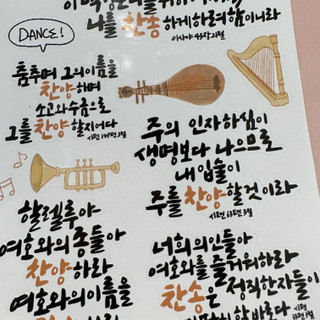 나를 찬송하게하려함이니라
이사야 43장 21절
DANCE!
춤추며 그의이름을
찬양하며
소고와 수금으로
그를 찬양할지어다
시편 149편 3절
주의 인자하심이
생명보다 나으므로
내 입술이
주를 찬양할것이라
시편 63편 3절
할렐루야
여호와의 종들아
찬양하라
여호와의 이름을
너희 의인들아
여호와를 즐거워하라
찬송은 정직한자들이
시편